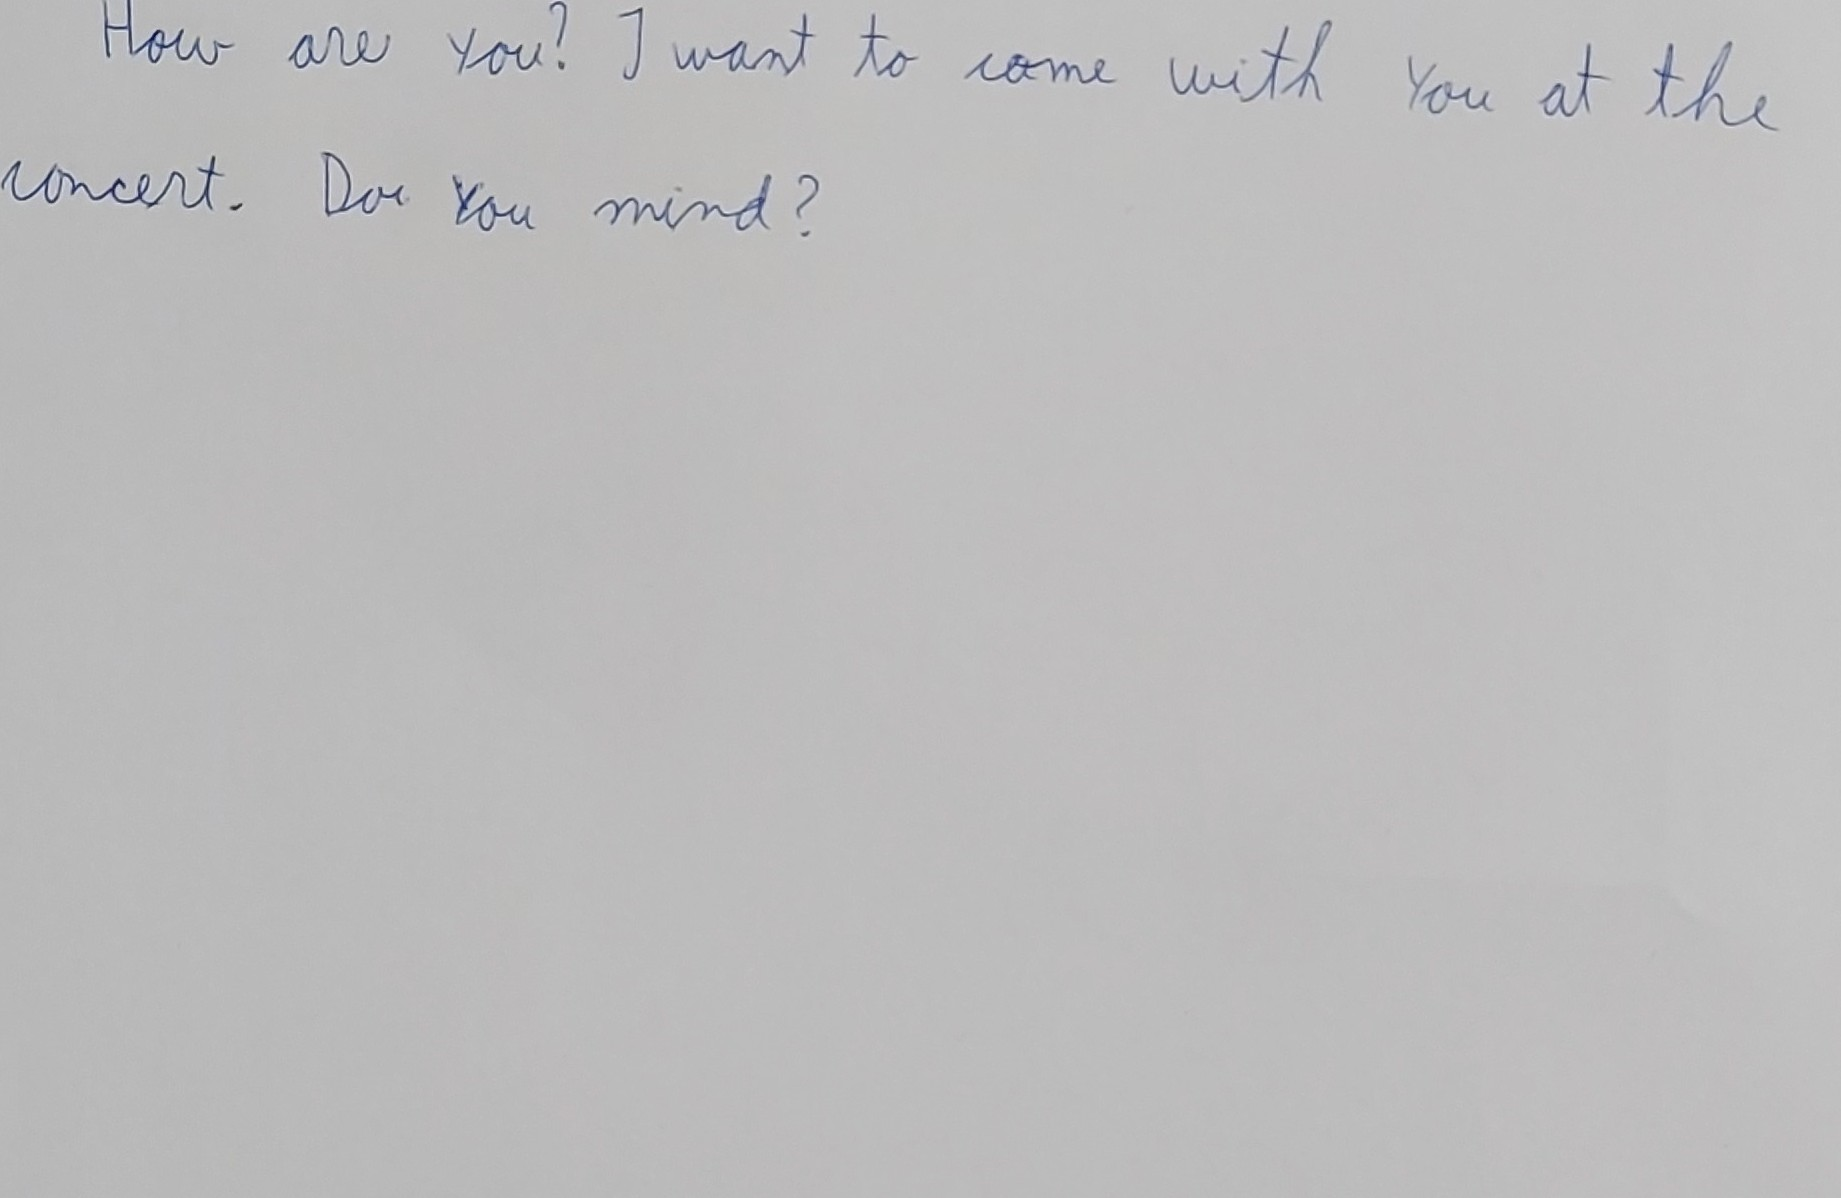 How are you? I want to come with You at the
concert. Doe You mind?